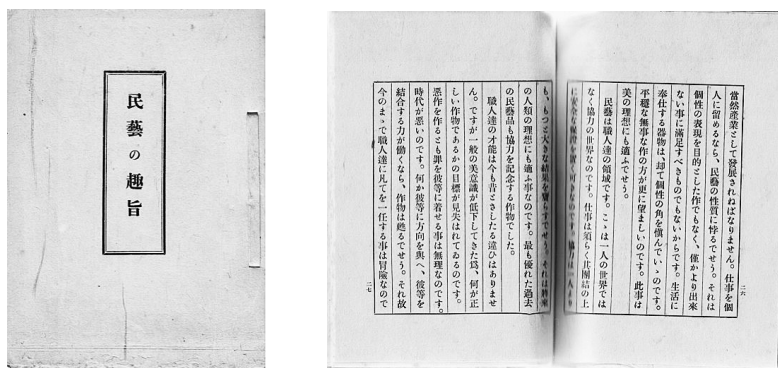 民藝の趣旨
當然產業として發展されねばなりません。仕事を個
人に留めるなら、民藝の性質に悖るでせう。それは
個性の表現を目的とした作でもなく、僅かより出來
ない事に滿足すべきものでもないからです。生活に
奉仕する器物は、却て個性の角を愼んでいゝのです。
平穩な無事な作の方が更に望ましいのです。此事は
美の理想にも適ふでせう。
民藝は職人達の領域です。こゝは一人の世界では
なく協力の世界なのです。仕事は須らく共團結の上
に安全な
協力は一人より
二六
も、もつと大きな結果を齎すでせう。それは將來
の人類の理想にも適ふ事なのです。最も優れた過去
の民藝品も協力を記念する作物でした。
職人達の才能は今も昔とさしたる違ひはありませ
ん。ですが一般の美意識が低下してきた爲、何が正
しい作物であるかの目標が見失はれてゐるのです。
惡作を作るとも罪を彼等に着せる事は無理なのです。
時代が惡いのです。何か彼等に方向を與へ、彼等を
結合する力が働くなら、作物は甦るでせう。それ故
今のまゝで職人達に凡てを一任する事は冒險なので
二七